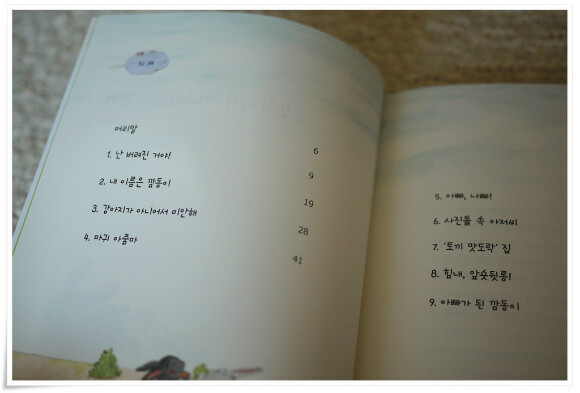 머리말 6
1. 난 버려진 거야! 9
2. 내 이름은 깜동이 19
3. 강아지가 아니어서 미안해 28
4. 마귀 아줌마 41
5. 아빠,
6. 사진틀 속 아저씨
7. '토끼 맛도락' 집
8. 힘내, 앞숏뒷롱!
9. 아빠가 된 깜동이